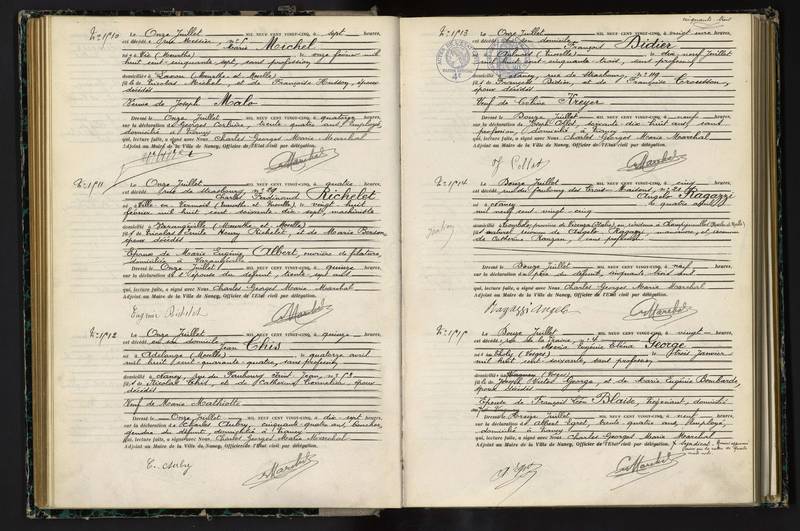 N° 1910 Le Onze Juillet MIL NEUF CENT VINGT-CINQ, à sept heures,
est décédé rue Messier, n° 5
Marie Michel
née à Vic (Meurthe), le onze février mil
huit cent cinquante sept, sans profession
domicilié à Laxou (Meurthe et Moselle)
fille de Nicolas Michel et de Françoise Husson, époux
décédés
Veuve de Joseph Malo
Dressé le Onze Juillet MIL NEUF CENT VINGT-CINQ, à quatorze heures,
sur la déclaration de Georges trente quatre ans, employé,
domicilié à Nancy
qui, lecture faite, a signé avec Nous, Charles Georges Marie Marchal
Adjoint au Maire de la Ville de Nancy, Officier de l'État civil par délégation.
GMarchal
N° 1911 Le Onze Juillet MIL NEUF CENT VINGT-CINQ, à quatre heures,
est décédé rue de Strasbourg, n° 29
Charles Ferdinand Richelet
né à Ville-en-Vermois (Meurthe et Moselle) le vingt huit
février mil huit cent soixante dix sept, machiniste
domicilié à Varangéville (Meurthe et Moselle)
fils de Nicolas Emile Henry Richelet, et de Marie
époux décédés
Epoux de Marie Eugénie Albert, ouvrière de filature,
domiciliée à Varangéville
Dressé le Onze Juillet MIL NEUF CENT VINGT-CINQ, à quinze heures,
sur la déclaration de l'épouse du défunt, trente sept ans
qui, lecture faite, a signé avec Nous, Charles Georges Marie Marchal
Adjoint au Maire de la Ville de Nancy, Officier de l'État civil par délégation.
Eugénie Richelet GMarchal
N° 1912 Le Onze Juillet MIL NEUF CENT VINGT-CINQ, à quinze heures,
est décédé en son domicile
Jean Chis
né à Adelange (Moselle) le quatorze avril
mil huit cent quarante quatre, sans profession
domicilié à Nancy, rue du Faubourg Saint Jean, n° 52
fils de Nicolas Chis, et de Catherine époux
décédés
Veuf de Marie Mathiotte
Dressé le Onze Juillet MIL NEUF CENT VINGT-CINQ, à dix sept heures,
sur la déclaration de Charles Aubry, cinquante quatre ans, boucher,
gendre du défunt, domicilié à Nancy
qui, lecture faite, a signé avec Nous, Charles Georges Marie Marchal
Adjoint au Maire de la Ville de Nancy, Officier de l'État civil par délégation.
C. Aubry GMarchal
cinquante trois
N° 1913 Le Onze Juillet MIL NEUF CENT VINGT-CINQ, à vingt une heures,
est décédé en son domicile
François Didier
né à (Moselle) le dix neuf Juillet
mil huit cent cinquante trois, sans profession
domicilié à Nancy, rue de Strasbourg, n° 119
fils de François Didier, et de Françoise
époux décédés
Veuf de Kreyer
Dressé le Douze Juillet MIL NEUF CENT VINGT-CINQ, à neuf heures,
sur la déclaration de Collet, soixante dix huit ans, sans
profession, domicilié à Nancy
qui, lecture faite, a signé avec Nous, Charles Georges Marie Marchal
Adjoint au Maire de la Ville de Nancy, Officier de l'État civil par délégation.
Collet GMarchal
N° 1914 Le Douze Juillet MIL NEUF CENT VINGT-CINQ, à cinq heures,
est décédé faubourg des Trois Maisons, n° 21
Angelo Ragazzi
né à Nancy le quatre
mil neuf cent vingt-cinq
domicilié
de Angelo Ragazzi, manœuvre, et
de Catherine sans profession
Dressé le Douze Juillet MIL NEUF CENT VINGT-CINQ, à neuf heures,
sur la déclaration du père du défunt, trente huit ans
qui, lecture faite, a signé avec Nous, Charles Georges Marie Marchal
Adjoint au Maire de la Ville de Nancy, Officier de l'État civil par délégation.
Ragazzi Angelo GMarchal
N° 1915 Le Douze Juillet MIL NEUF CENT VINGT-CINQ, à vingt heures,
est décédé
Maria Eugénie George
née à Tholy (Vosges) le trois Janvier
mil huit cent soixante, sans profession
domicilié à (Vosges)
fille de Joseph Victor George, et de Marie Eugénie
époux décédés
Epouse de François Léon Blaise, négociant, domicilié
Dressé le Treize Juillet MIL NEUF CENT VINGT-CINQ, à neuf heures,
sur la déclaration de Albert trente quatre ans, employé,
domicilié à Nancy
qui, lecture faite, a signé avec Nous, Charles Georges Marie Marchal
Adjoint au Maire de la Ville de Nancy, Officier de l'État civil par délégation.
GMarchal